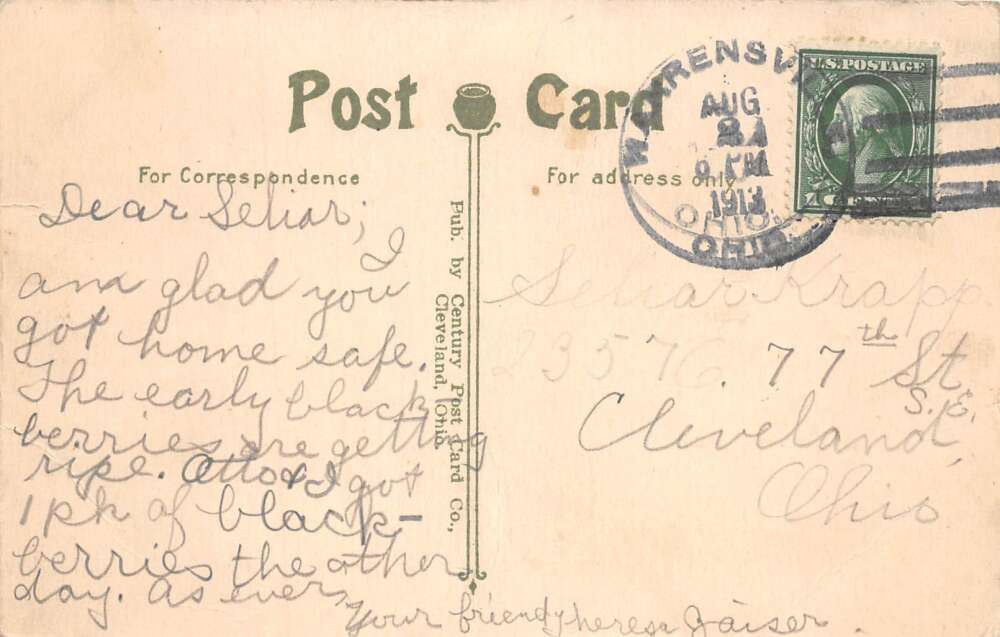 Post Card
For Correspondence
For address only.
WARRENSVI
AUG
6 PM
1913
OHIO.
OHIO.
U.S. POSTAGE
Pub. by Century Post Card Co.,
Cleveland, Ohio.
Dear Seliar;
I
am glad you
got home safe.
The early black
berries are getting
ripe. Otto & I got
1 pk of black-
berries the other
day. As ever
Your friend Theresa Gaiser.
Seliar Krapp
2357 77th St.
S. E.
Cleveland,
Ohio